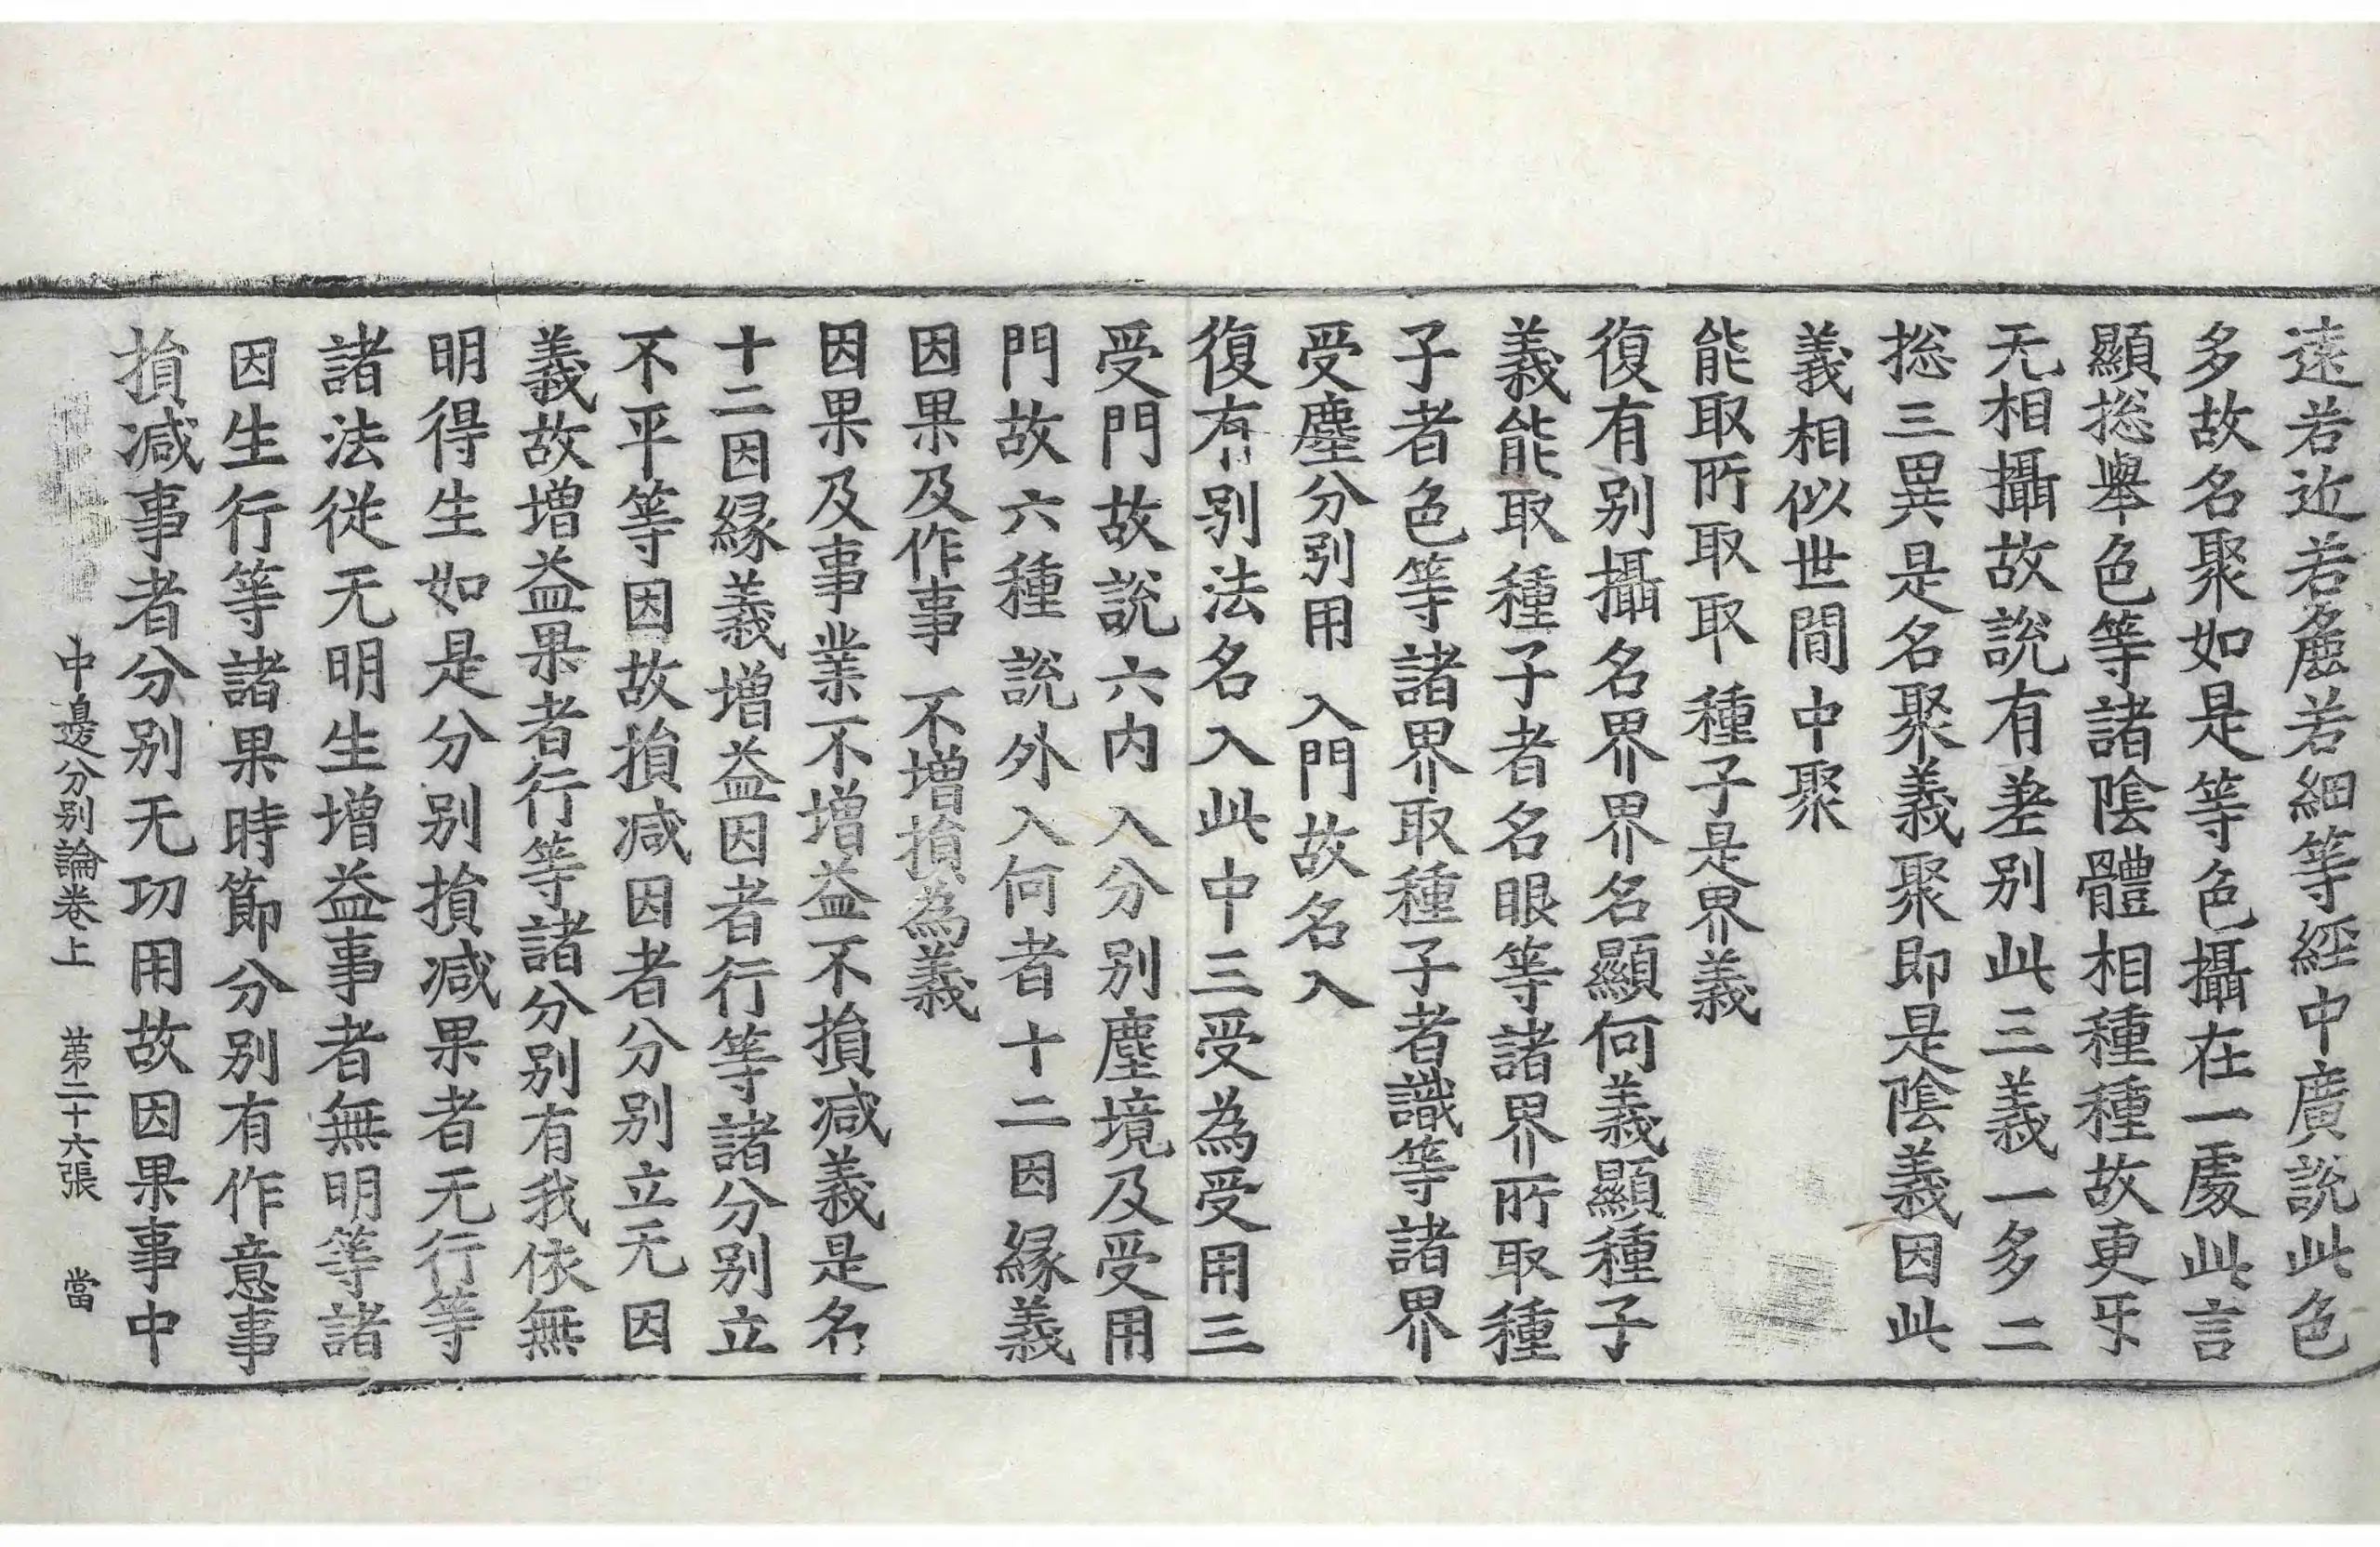 遠若近若麁若細等經中廣說此色
多故名聚如是等色攝在一處此言
顯捴舉色等諸陰體相種種故更㸦
无相攝故說有差別此三義一多二
捴三異是名聚義聚即是陰義因此
義相似世間中聚
能取所取取 種子是界義
復有別攝名界界名顯何義顯種子
義能取種子者名眼等諸界所取種
子者色等諸界取種子者識等諸界
受塵分別用 入門故名入
復有別法名入此中三受為受用三
受門故說六內入分別塵境及受用
門故六種說外入何者十二因緣義
因果及作事 不增損為義
因果及事業不增益不損減義是名
十二因緣義增益因者行等諸分別立
不平等因故損減因者分別立无因
義故增益果者行等諸分別有我依無
明得生如是分別損減果者无行等
諸法從无明生增益事者無明等諸
因生行等諸果時節分別有作意事
損減事者分別无功用故因果事中
中邊分別論卷上 苐二十六張 當